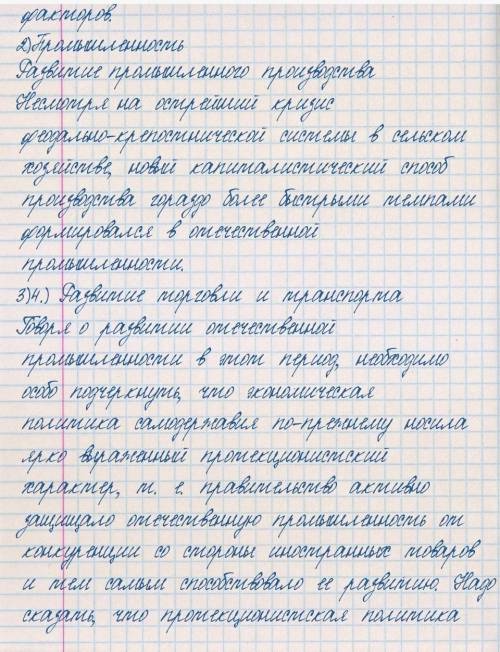 факторов.
2) Промышленность
Развитие промышленного производства
Несмотря на острейший кризис
феодально-крепостнической системы в сельском
хозяйстве, новый капиталистический способ
производства гораздо более быстрыми темпами
формировался в отечественной
промышленности.
3)4.) Развитие торговли и транспорта
Говоря о развитии отечественной
промышленности в этот период, необходимо
особо подчеркнуть, что экономическая
политика самодержавия по-прежнему носила
ярко выраженный протекционистский
характер, т. е. правительство активно
защищало отечественную промышленность от
конкуренции со стороны иностранных товаров
и тем самым способствовало ее развитию. Надо
сказать, что протекционистская политика